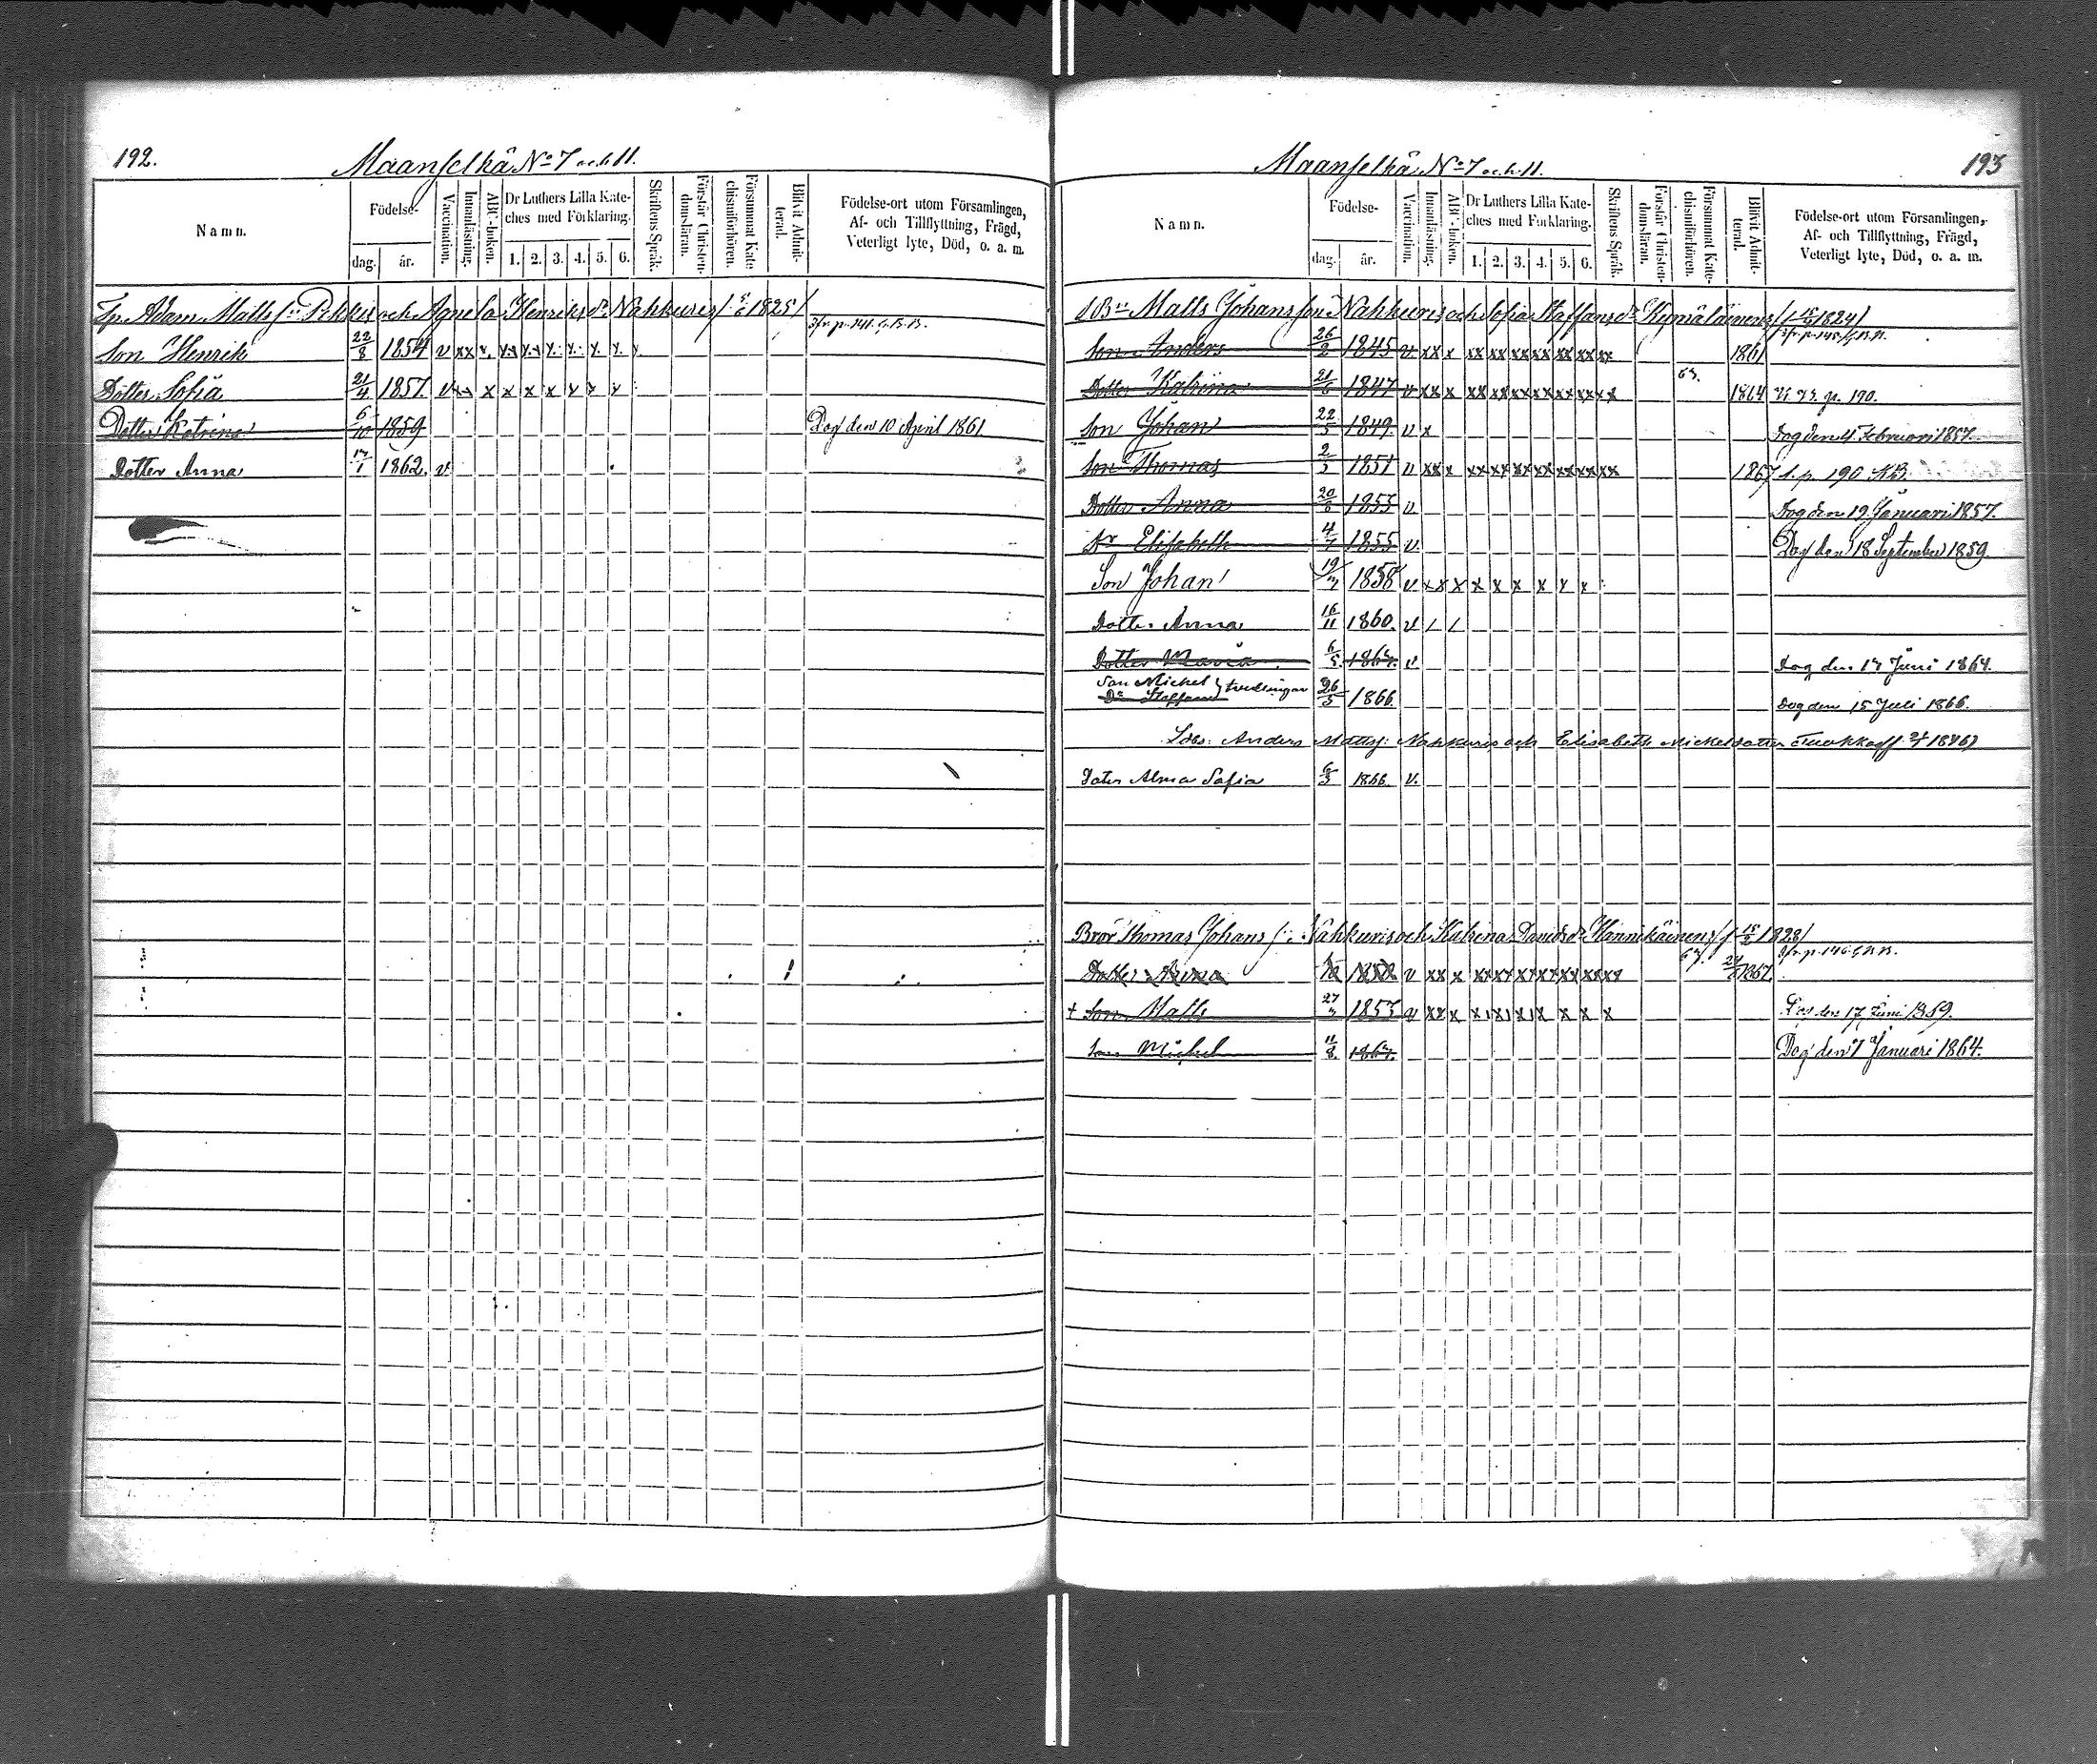 192.
Maanselkä No 7 och 11.
Namn.
Födelse-
dag.
år.
Vaccination.
Innanläsning.
ABC-boken.
Dr Luthers Lilla Kate-
ches med Förklaring.
1. 2. 3. 4. 5. 6.
Skriftens Språk.
Förstår Christen-
domsläran.
Försummat Kate
chismiförhören.
Blifvit Admit-
terad.
Födelse-ort utom Församlingen,
Af- och Tillflyttning, Frägd,
Veterligt lyte, Död, o. a. m.
Adam Matts och Agneta Henriks dr Nahkuris 1825/
fr. p. 141. G.K.B.
Son Henrik 22/8 1854 v xx x
Dotter Sofia 21/4 1857. v x x x x x x x x
Dotter Katrina 6/10 1859 Dog den 10 April 1861
Dotter Anna 17/1 1862. v.
Maanselkä No 7 och 11.
193
Namn.
Födelse-
dag.
år.
Vaccination.
Innanläsning.
ABC-boken.
Dr Luthers Lilla Kate-
ches med Förklaring.
1. 2. 3. 4. 5. 6.
Skriftens Språk.
Förstår Christen-
domsläran.
Försummat Kate-
chismiförhören.
Blifvit Admit-
terad.
Födelse-ort utom Församlingen,
Af- och Tillflyttning, Frägd,
Veterligt lyte, Död, o. a. m.
Matts Johans Nahkuris och Sofia Staffans dr Kymäläinen 1824/
fr. p. 145. G.K.B.
Son Anders 26/2 1845 v xx x xx xx xx xx xx xx xx 1861
Dotter Katrina 21/6 1847 v xx x xx xx xx xx xx xx x 63. 1864 p. 190.
Son Johan 22/5 1849. v x Dog den 4 Februari 1857.
Son Thomas 2/3 1851 v xx x xx xx xx xx xx xx xx 1867 s. p. 190 KB.
Dotter Anna 20/6 1853 v Dog den 19 Januari 1857.
Dr Elisabeth 4/7 1855 v. Dog den 18 September 1859.
Son Johan 19/7 1858 v xx x x x x x x x
Dotter Anna 16/11 1860. v / /
Dotter Maria 6/5 v Dog den 17 Juni 1864.
Son Michel } tvillingar 26/5 1866.
Dn Staffan Dog den 15 Juli 1866.
Anders Mattss: Nahkuris och Elisabeth Mickelsdotter 1846)
Doter Alma Sofia 6/3 1866. v.
Bror Thomas Johans Nahkuris och Katrina Davids dr Hännikäinen 15/2 1828/
fr. p. 146. G.K.B.
Dotter Anna 1850 v xx x xx xx xx xx xx xx xx 67. 1867.
+ Son Matts 27/7 1853 v xx x x x x x x x x Dog den 17 Juni 1869.
Son Michel 11/8 Dog den 7 Januari 1864.